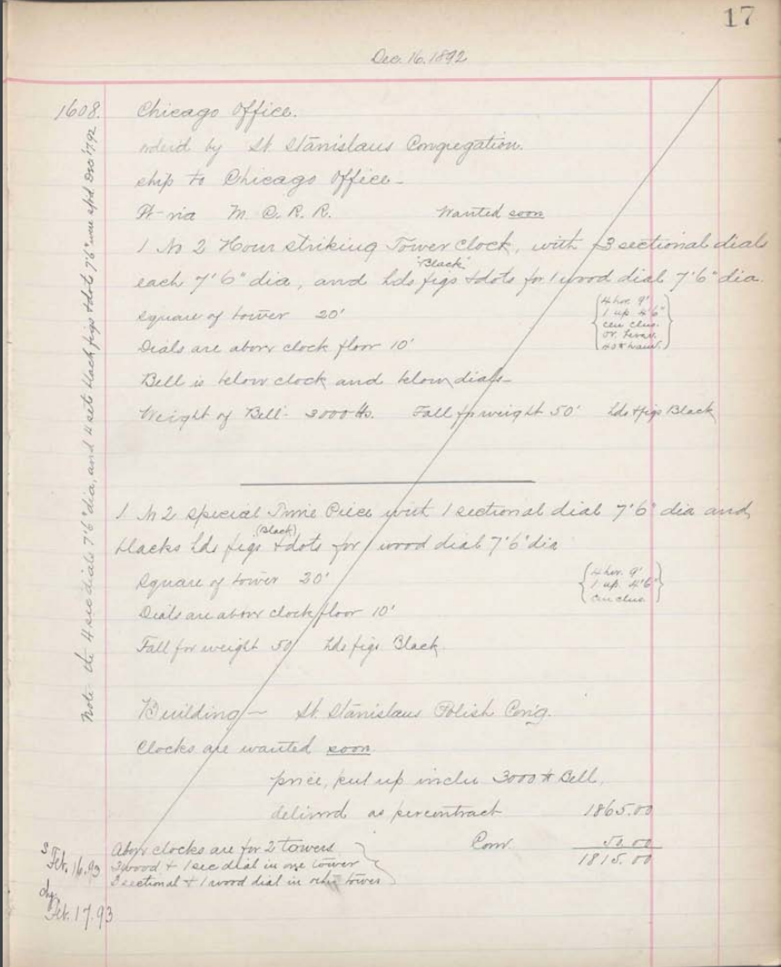 17
Dec. 16. 1892
1608. Chicago Office.
orderd by St. Stanislaus Congregation.
ship to Chicago Office -
Ft via M. C. R. R. Wanted soon
1 No 2 Hour striking Tower Clock, with 3 sectional dials
"Black"
each 7'6" dia, and hds figs & dots for 1 wood dial 7'6" dia.
Square of tower 20'
4 hor. 9'
1 up. 4'6"
cen clus.
Dials are above clock floor 10'
Bell is below clock and below dials -
Weight of Bell - 3000 lbs. Fall for weight 50' hds & figs Black
1 No 2 special Time Piece with 1 sectional dial 7'6" dia and
(black)
blacks hds figs & dots for wood dial 7'6" dia
Square of tower 20'
4 hor. 9'
1 up. 4'6"
cen clus
Dials are above clock floor 10'
Fall for weight 50' hds figs Black
Building - St. Stanislaus Polish Cong.
Clocks are wanted soon
price, put up inclu 3000 # Bell,
delivrd as per contract 1865.00
Com 50.00
1815.00
Abov clocks are for 2 towers
3 wood + 1 sec dial in one tower
3 sectional + 1 wood dial in othr tower
Feb. 16. 93
chg
Feb. 17. 93
Note the 4 sec dials 7'6" dia, and 4 sets black figs & dots 7'6" were spd Dec 17. 92